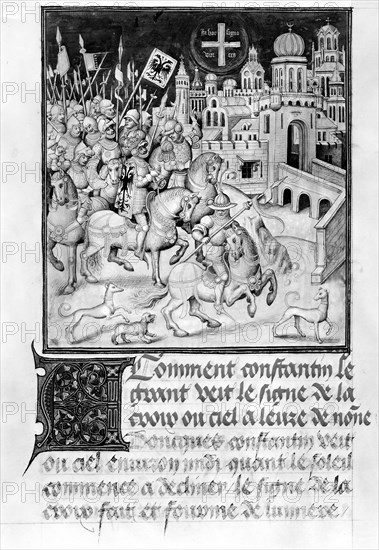 In hoc signo
vinces
Comment constantin le
grant veit le signe de la
croix ou ciel a leure de nōne
Doncques constantin veit
ou ciel environ midi quant le soleil
commence a decliner le signe de la
croix fait et fourme de lumiere